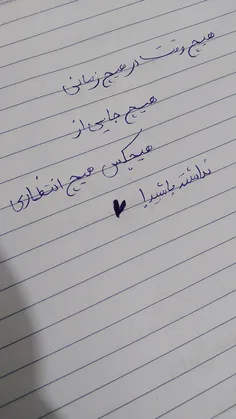 هیچ وقت در هیچ زمانی
هیچ جایی از
هیچکس هیچ انتظاری
نداشته باشید!